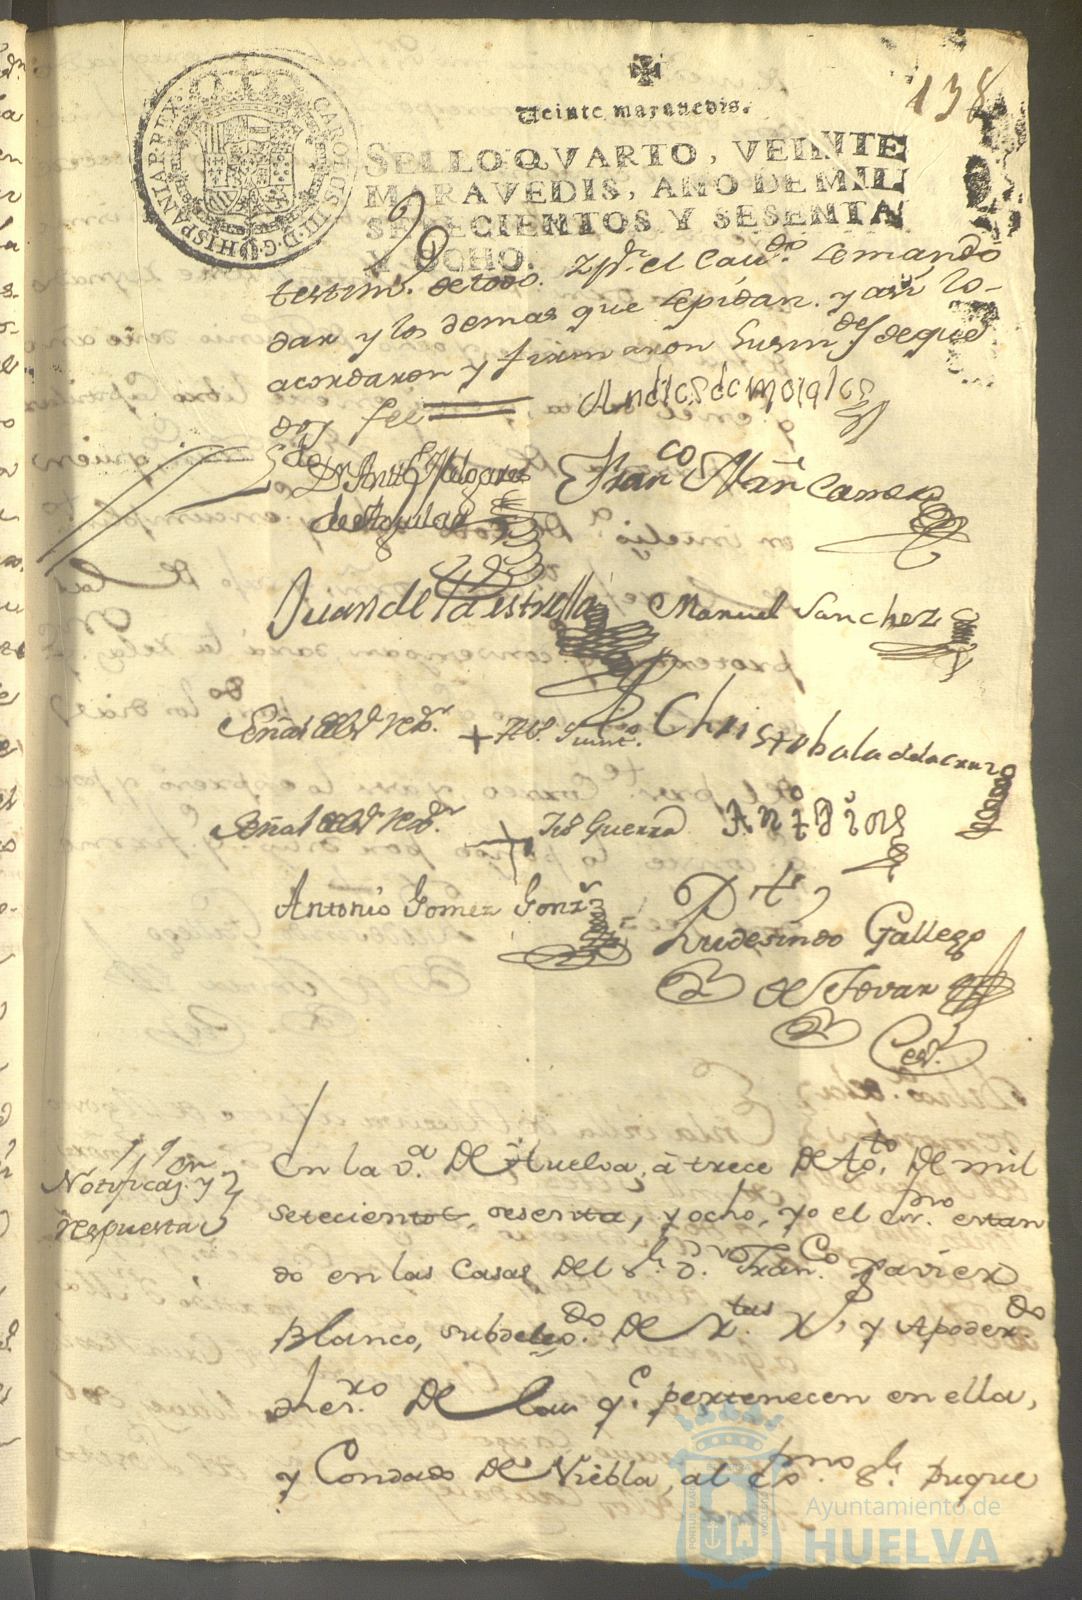 138
Veinte maravedis.
SELLO QVARTO, VEINTE
MARAVEDIS, AÑO DE MIL
SETECIENTOS Y SESENTA
Y OCHO.
CAROLUS III D G HISPANIAR REX
testim.º de todo. el Cav.do le mando
dar y los demas que se pidan. y asi lo
acordaron y firmaron sus m.des de que
doy fee
Andres de morales
D.n Ant.º Melgarejo
de Aguilar
Fran.co Mañ Carrera
Juan de la estrella
Manuel Sanchez
Señal del s.r Re.dr + Christobal de la Cruz
Señal del s.r Re.dr + Guerra
Ant.º Diaz
Antonio Gomez Gonz.z
Rudesindo Gallego
de Tovar
Notificaz.on y
respuesta
En la v.a De Huelva, a trece De Ag.to De mil
setecientos, sesenta, y ocho, yo el ess.no estan
do en las Casas Del s.r d.n Fran.co Xavier
Blanco, subdeleg.do De R.tas R.s y Apoder.do
De las q.e pertenecen en ella,
y Condado De Niebla, al Ex.mo s.r Duque
Ayuntamiento de
HUELVA